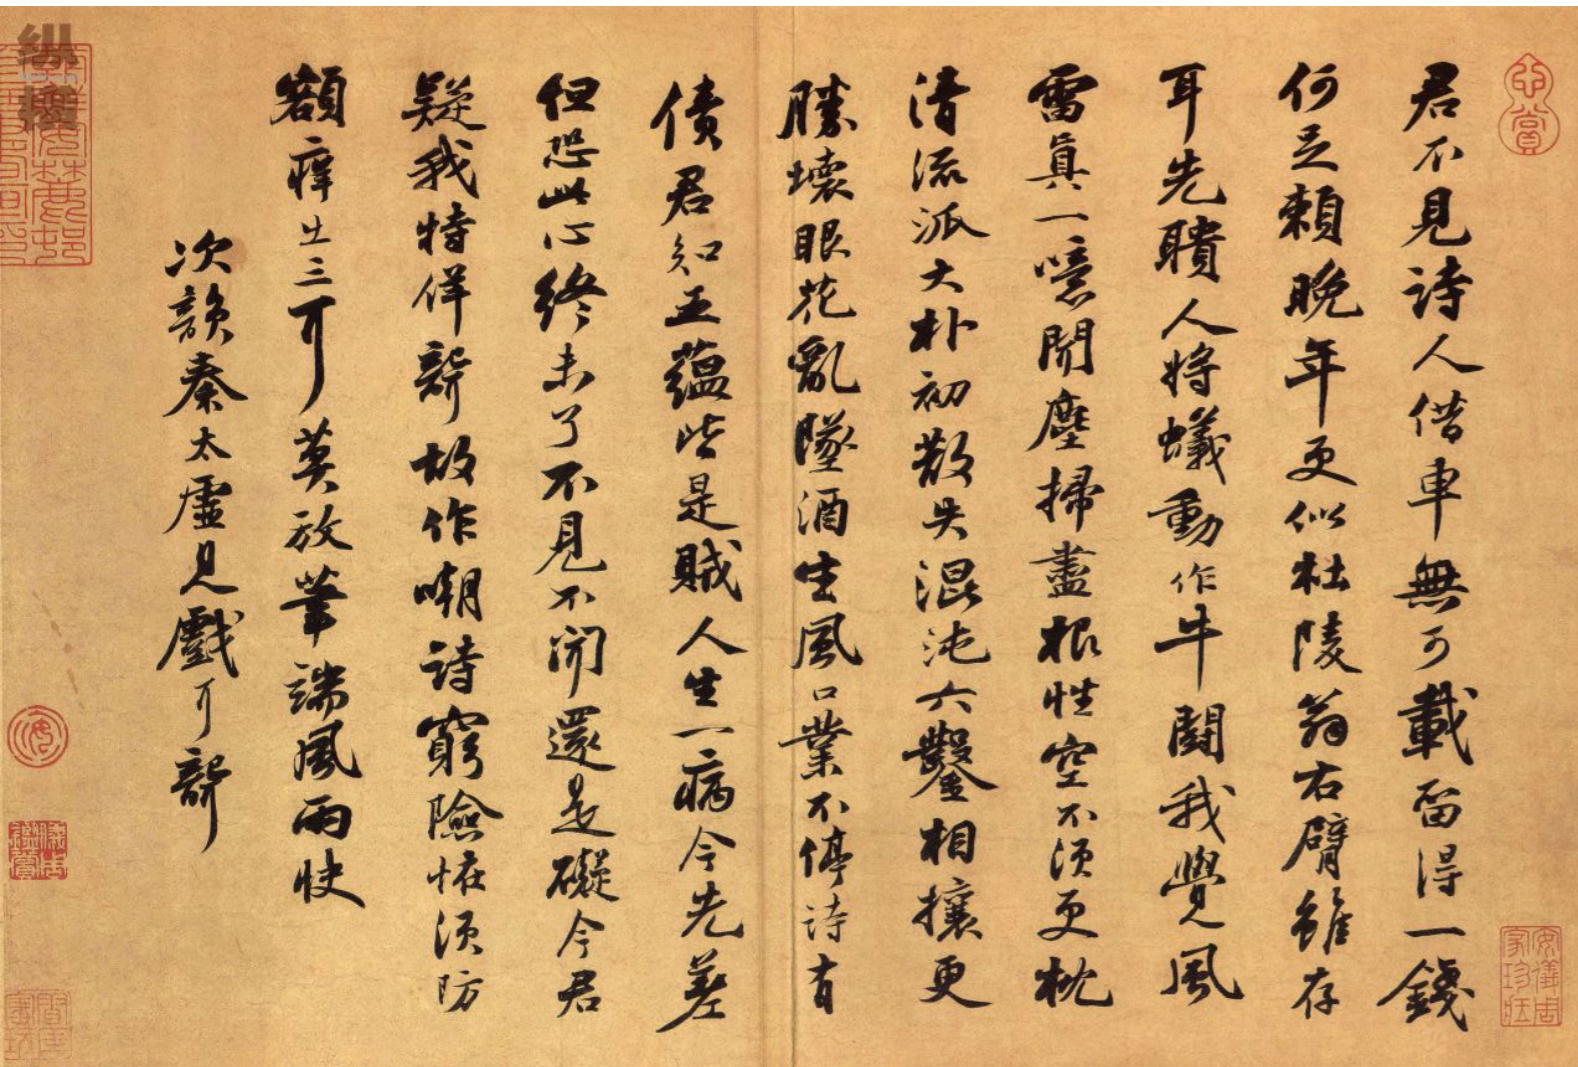 君不見詩人借車無可載留得一錢
何足賴晚年更似杜陵翁右臂雖存
耳先聵人將蟻動作牛鬪我覺風
雷真一噫聞塵掃盡根性空不須更枕
清流派大朴初散失混沌六鑿相攘更
勝壞眼花亂墜酒生風口業不停詩有
債君知五蘊皆是賊人生一病今先差
但恐此心終未了不見不聞還是礙今君
疑我特佯聾故作嘲詩窮險怪須防
額癢出三耳莫放筆端風雨快
次韻秦太虛見戲耳聾